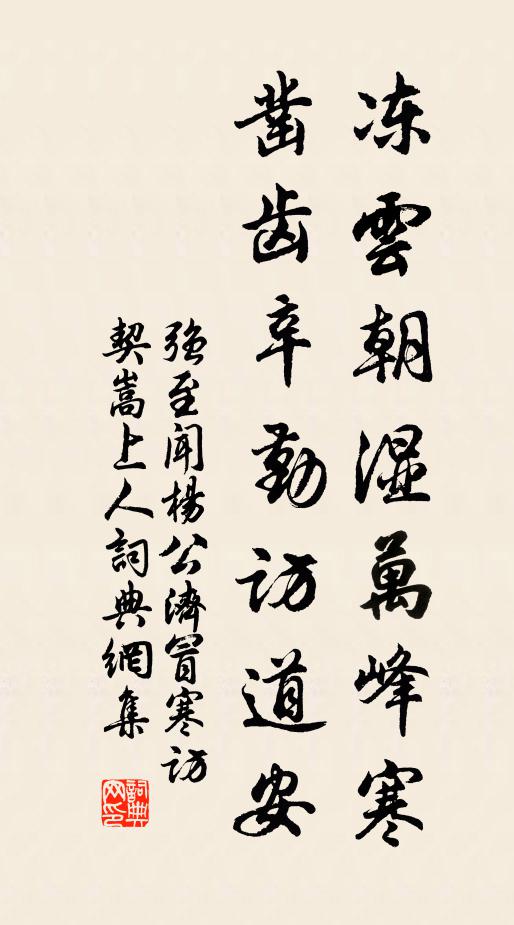 冻雲朝湿萬峰寒
凿齿辛勤访道安
强至闻杨公濟冒寒访
契嵩上人詞典網集
詞典网印